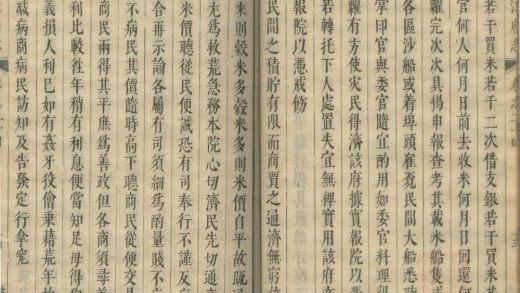 若干買米若干二次借支銀若干買米
官何人何月日前去收米何月日回還何
糶完次次具揭申報查考其載米船隻
各區沙船或着埠頭雇覓民間大船悉
掌印官與委官隨宜酌用如委官料理得
糶有方使災民得濟該府據實報院以
若轉托下人處置失宜無裨實用該府
報院以憑戒飭
民間之積貯有限而商賈之通濟無窮故
來則穀米多穀米多則米價自平故疏
尤為救荒急務本院心切濟民先切通
米價聽從民便誠恐有司奉行不謹反
合再示諭各屬有司須細為酌量賤不
不病民其價隨時高下聽商民從便交
商民兩得其平庶為善政但各商須
利比較徃年稍有利息便當知足毋得
義損人利己如有姦牙狡儈乘藉荒年故
減病商病民訪知及告發定行拿究